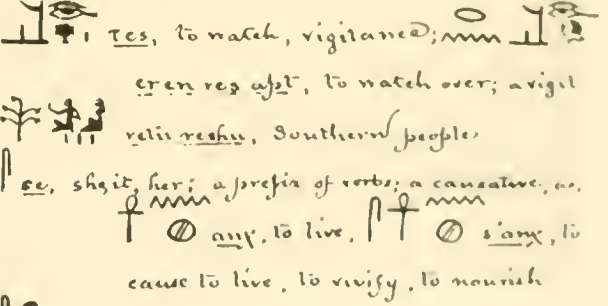 res, to watch, vigilance;
eren res apt, to watch over; a vigil
retu reshu, Southern people
se, she, it, her; a prefix of verbs; a causative, as,
anχ, to live, s'anχ, to
cause to live, to vivify, to nourish